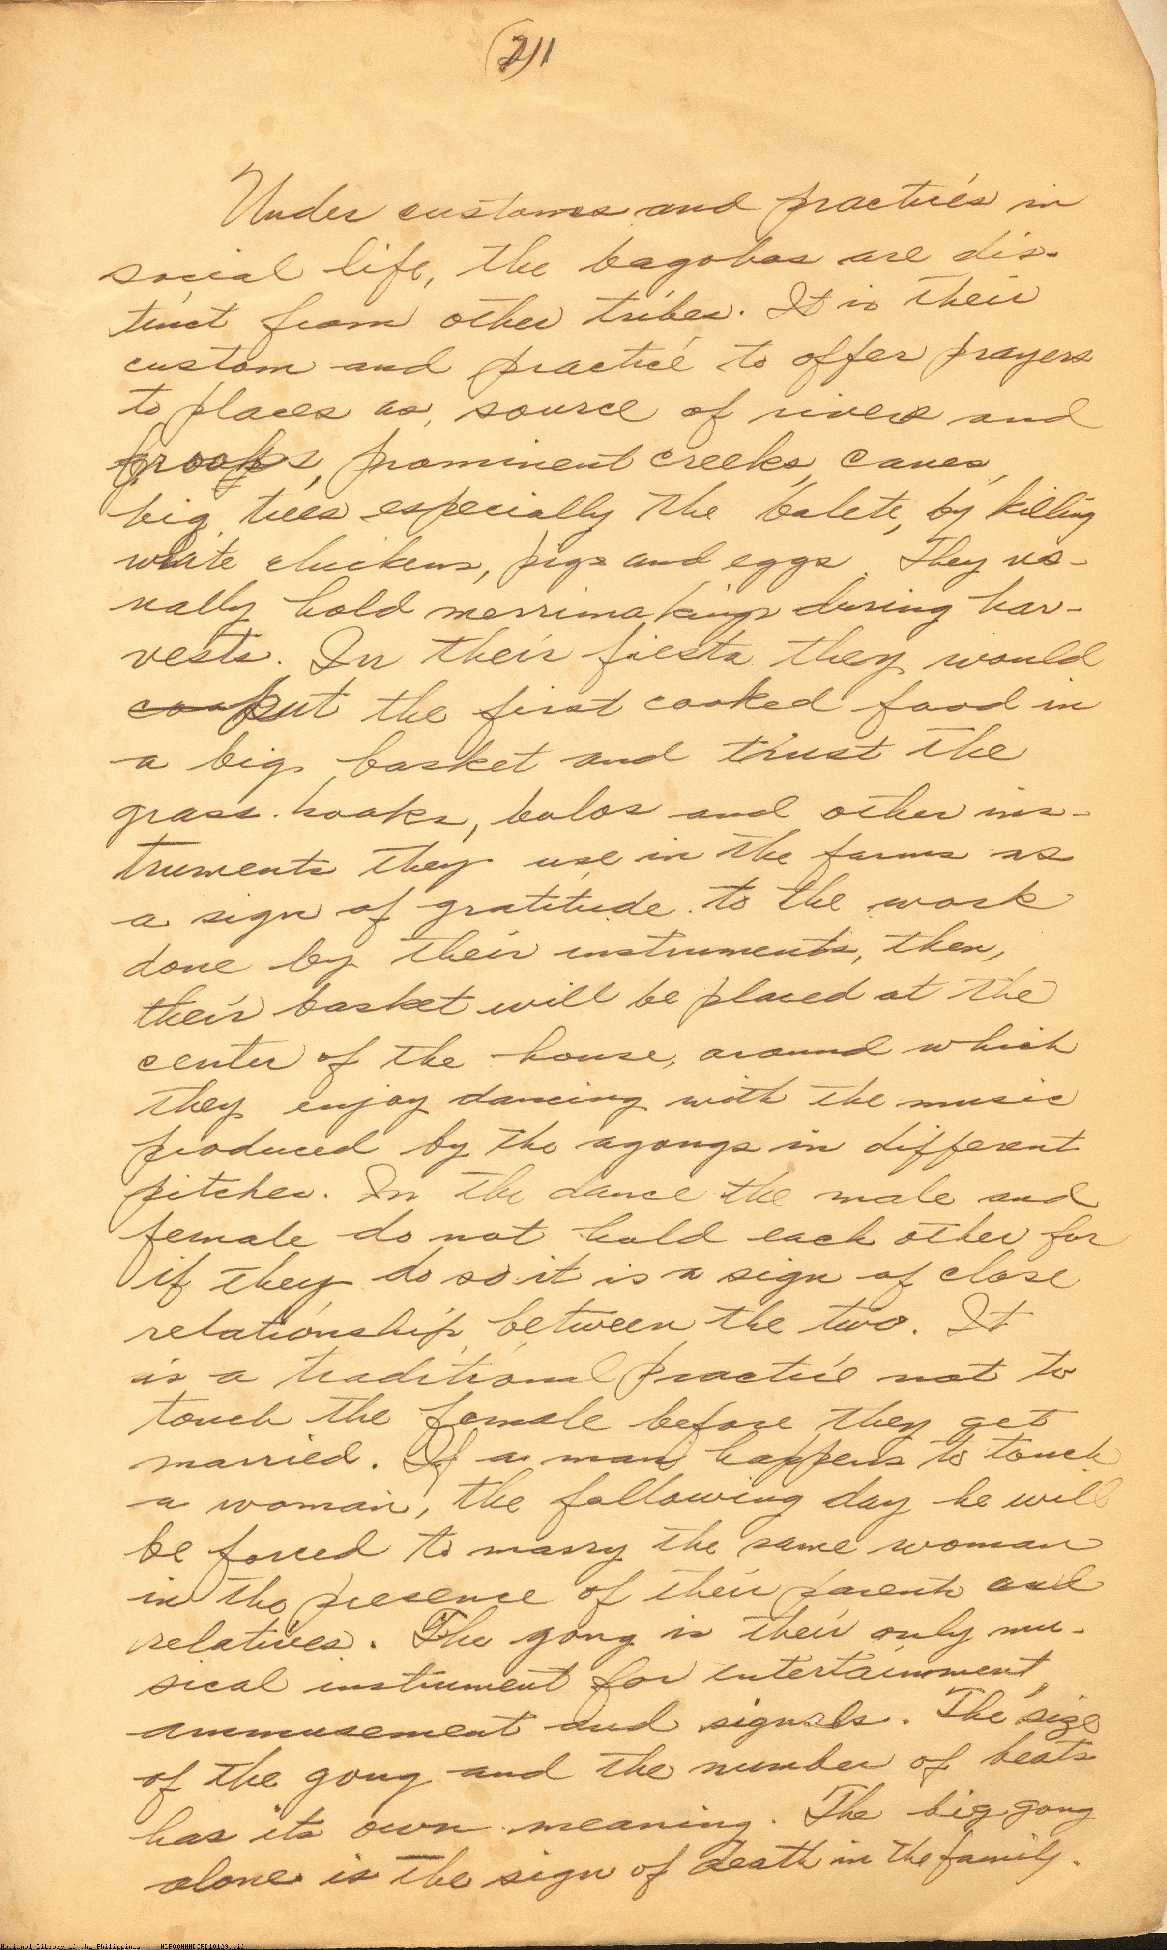 (2)11
Under customs and practices in
social life, the bagobos are dis-
tinct from other tribes. It is their
custom and practice to offer prayers
to places as, source of rivers and
brooks, prominent creeks, caves,
big trees especially the balete, by killing
white chickens, pigs and eggs. They us-
ually hold merrimakings during har-
vests. In their fiesta they would
put the first cooked food in
a big basket and thrust the
grass-hooks, bolos and other ins-
truments they use in the farms as
a sign of gratitude to the work
done by their instruments, then,
their basket will be placed at the
center of the house, around which
they enjoy dancing with the music
produced by the agongs in different
pitches. In the dance the male and
female do not hold each other for
if they do so it is a sign of close
relationship between the two. It
is a traditional practice not to
touch the female before they get
married. If a man happens to touch
a woman, the following day he will
be forced to marry the same woman
in the presence of their parents and
relatives. The gong is their only mu-
sical instrument for entertainment,
ammusement and signals. The size
of the gong and the number of beats
has its own meaning. The big gong
alone is the sign of death in the family.
National Library of the Philippines